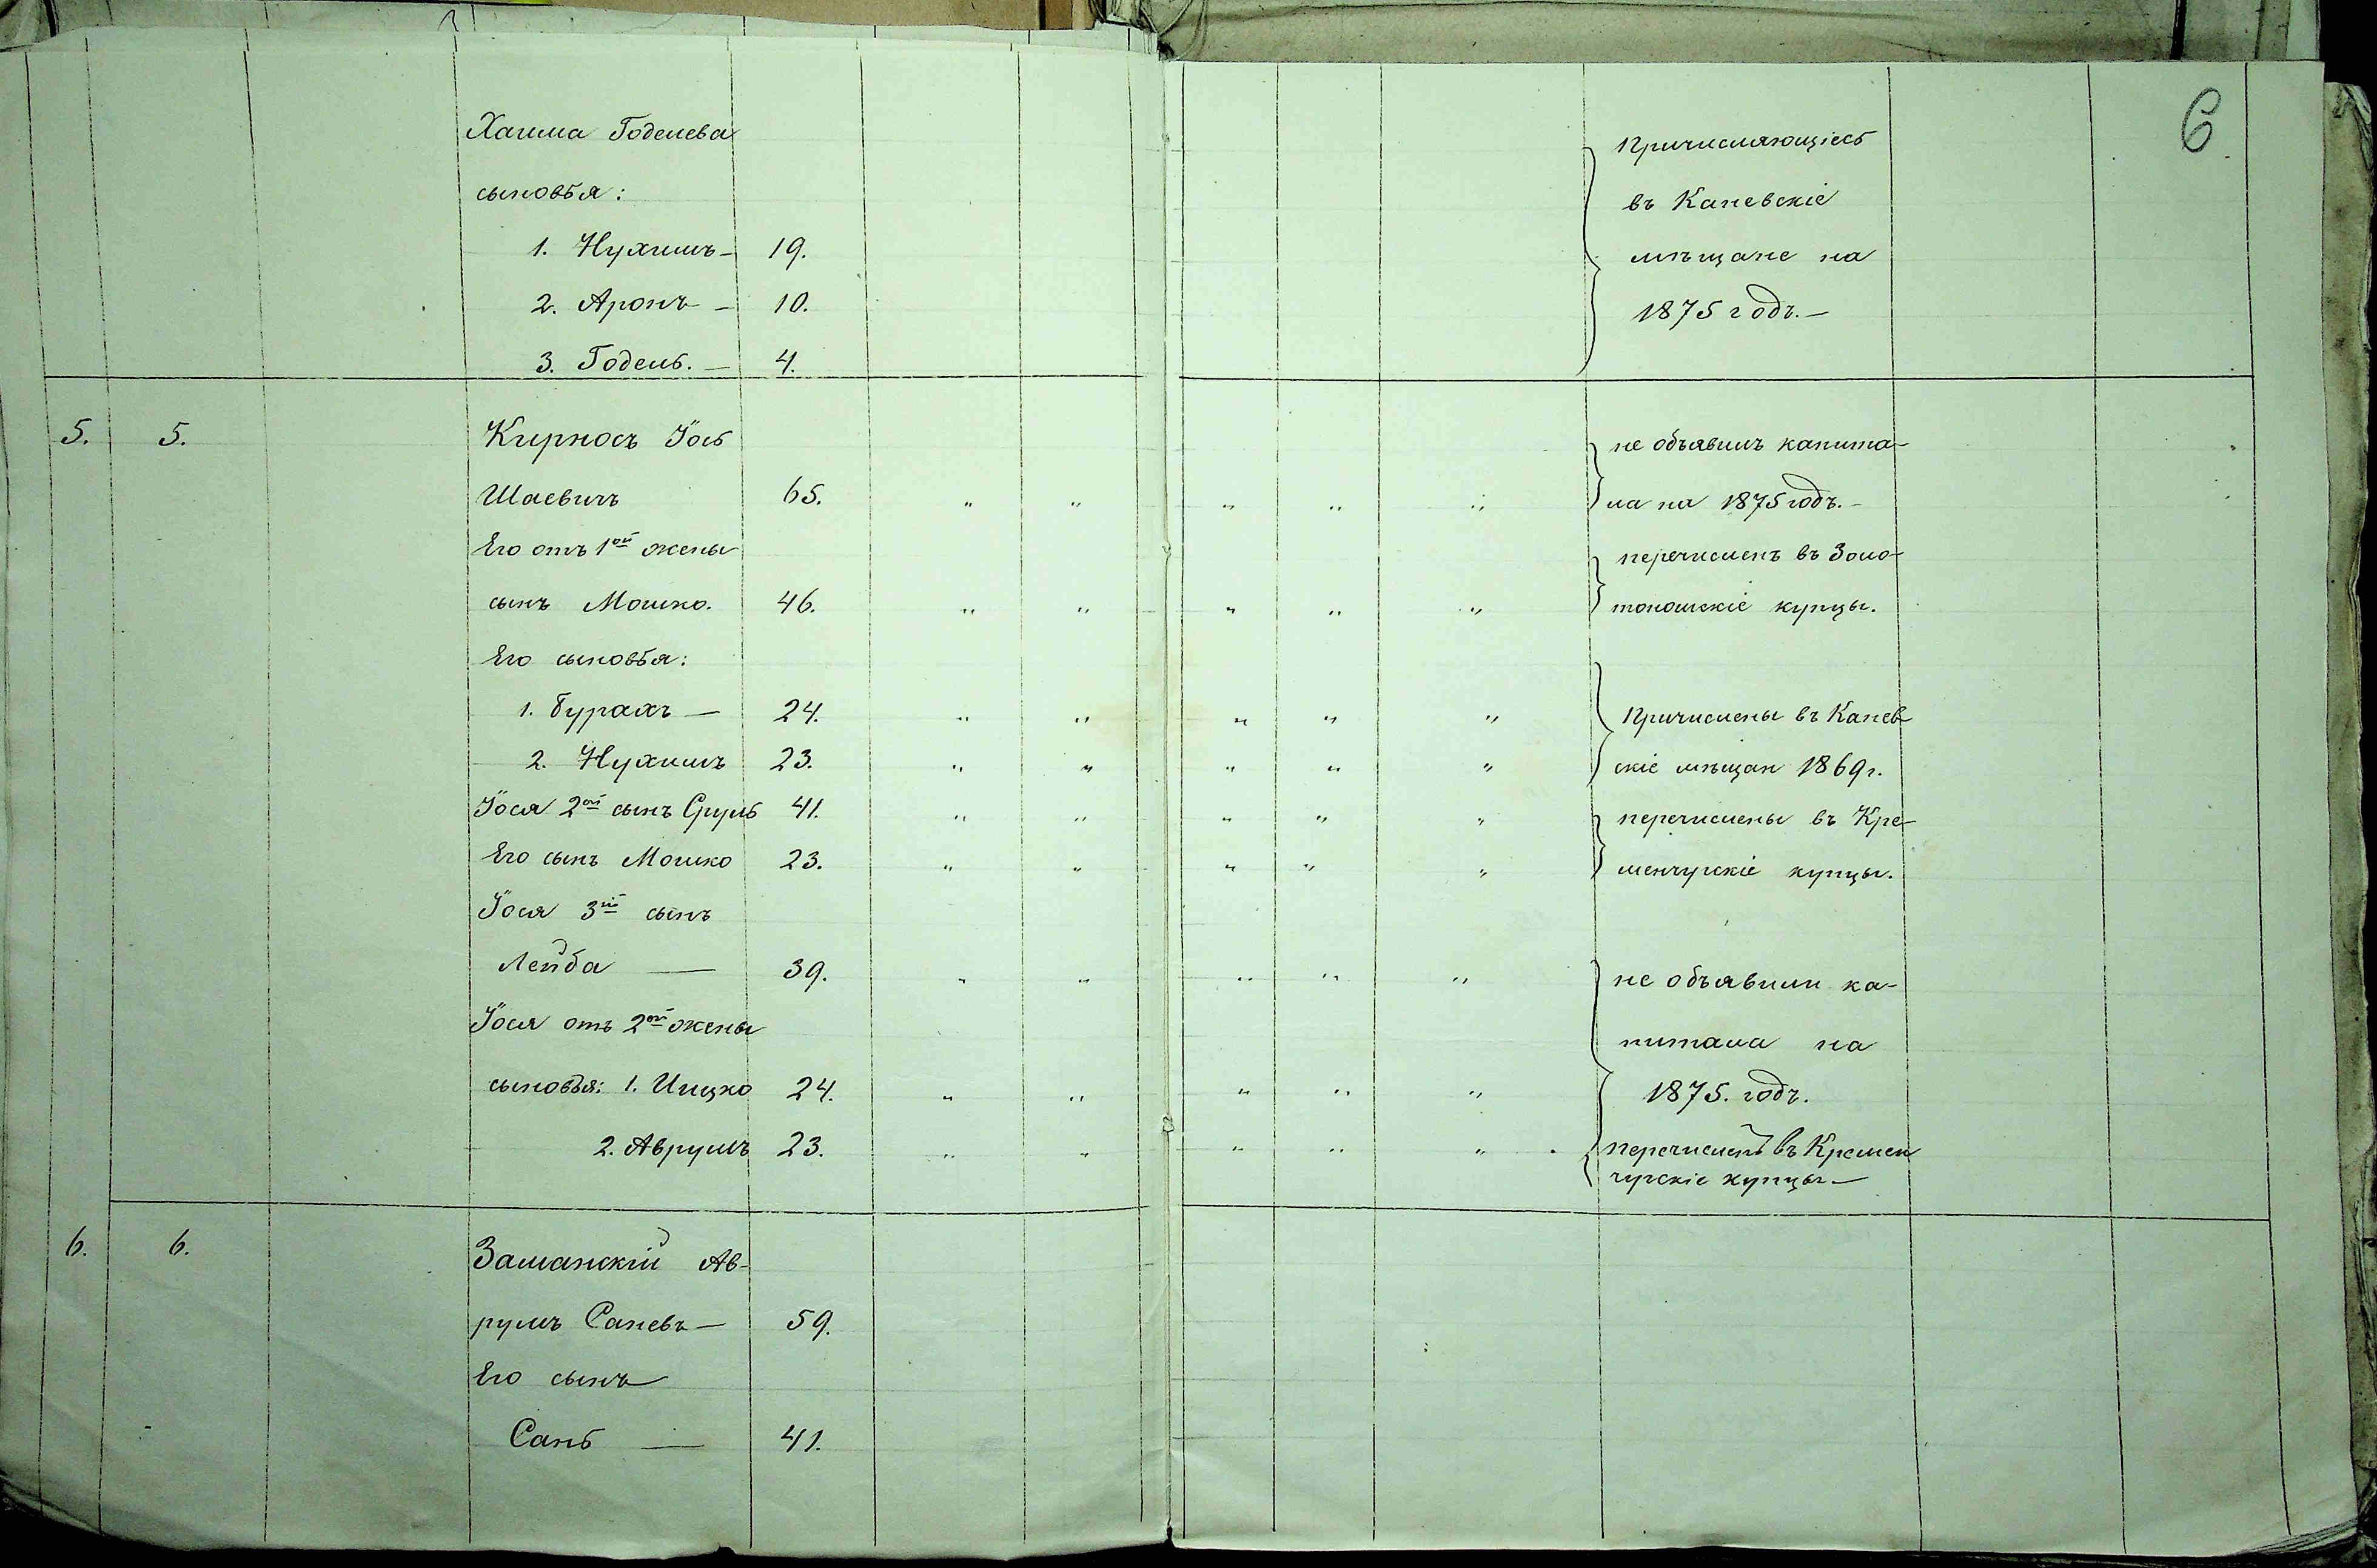 6
Хаима Годелева
сыновья:
1. Нухимъ - 19.
2. Аронъ - 10.
3. Годель. - 4.
Причисляющіесь
въ Каневскіе
мѣщане на
1875 годъ. -
5. 5. Кирносъ Іось
Шаевичъ 65. " " " " "
не объявилъ капита-
ла на 1875 годъ. -
Его отъ 1ой жены
сынъ Мошко. 46. " " " " "
перечисленъ въ Золо-
тоношскіе купцы.
Его сыновья:
1. Бурахъ — 24. " " " " "
2. Нухимъ 23. " " " " "
Причислены въ Канев-
скіе мѣщан 1869 г.
Іося 2ой сынъ Сруль 41. " " " " "
Его сынъ Мошко 23. " " " " "
перечислены въ Кре-
менчугскіе купцы.
Іося 3ій сынъ
Лейба — 39. " " " " "
Іося отъ 2ой жены
сыновья: 1. Ицко 24. " " " " "
2. Аврумъ 23. " " " " "
не объявили ка-
питала на
1875. годъ.
перечисленъ въ Кремен
чугскіе купцы —
6. 6. Заманскій Ав-
румъ Саневъ — 59.
Его сынъ
Сань — 41.